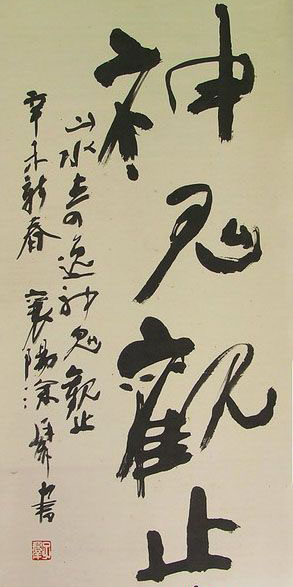 神鬼觀止
山水去可逸神鬼觀止
辛未新春 襄陽涂
書